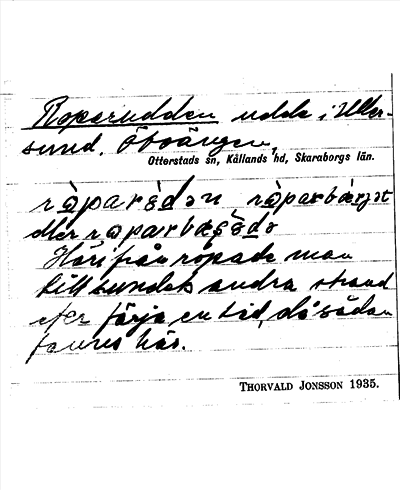 Roparudden udde i Uller-
sund. Åboängen,
Otterstads sn, Kållands hd, Skaraborgs län.
eller
Härifrån ropade man
till sundets andra strand
efter färja en tid, då sådan
fanns här.
THORVALD JONSSON 1935.